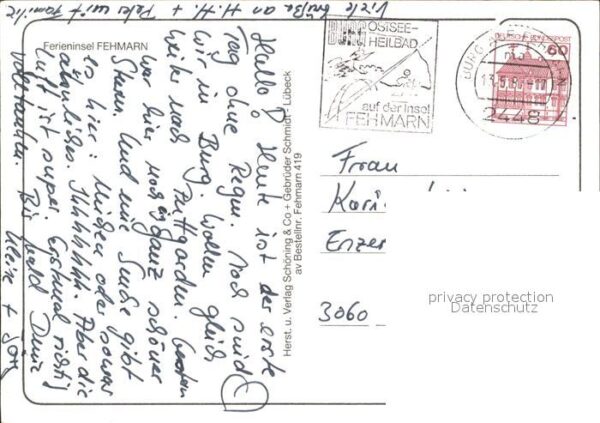 Ferieninsel FEHMARN
Viele Grüße an H.H. + Peter mit Familie
Hallo! Heute ist der erste
Tag ohne Regen. Noch sind
wir in Burg. Wollen gleich
weiter nach Puttgarden. Gestern
war hier noch ganz schöner
Sturm. Und eine Suche gibt
es hier: Mücken oder sowas
ähnliches. Ihhhhhh. Aber die
Luft ist super. Erstmal richtig
vollt
Bis bald Deine
Herst. u. Verlag Schöning & Co + Gebrüder Schmidt - Lübeck
av Bestellnr. Fehmarn 419
BURG OSTSEE-
HEILBAD
auf der Insel
FEHMARN
BURG
2448
DEUTSCHE BUNDESPOST
60
Frau
Enzer
3060
privacy protection
Datenschutz